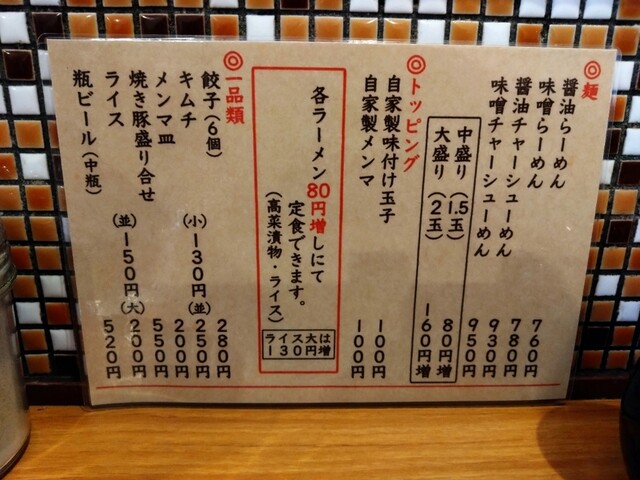 ◎麺
醤油らーめん 760円
味噌らーめん 780円
醤油チャーシューめん 930円
味噌チャーシューめん 950円
中盛り(1.5玉) 80円増
大盛り(2玉) 160円増
◎トッピング
自家製味付け玉子 100円
自家製メンマ 100円
各ラーメン80円増しにて
定食できます。
(高菜漬物・ライス)
ライス大は
130円増
◎一品類
餃子(6個) 280円
キムチ (小)130円(並)250円
メンマ皿 200円
焼き豚盛り合せ 550円
ライス (並)150円(大)200円
瓶ビール(中瓶) 520円